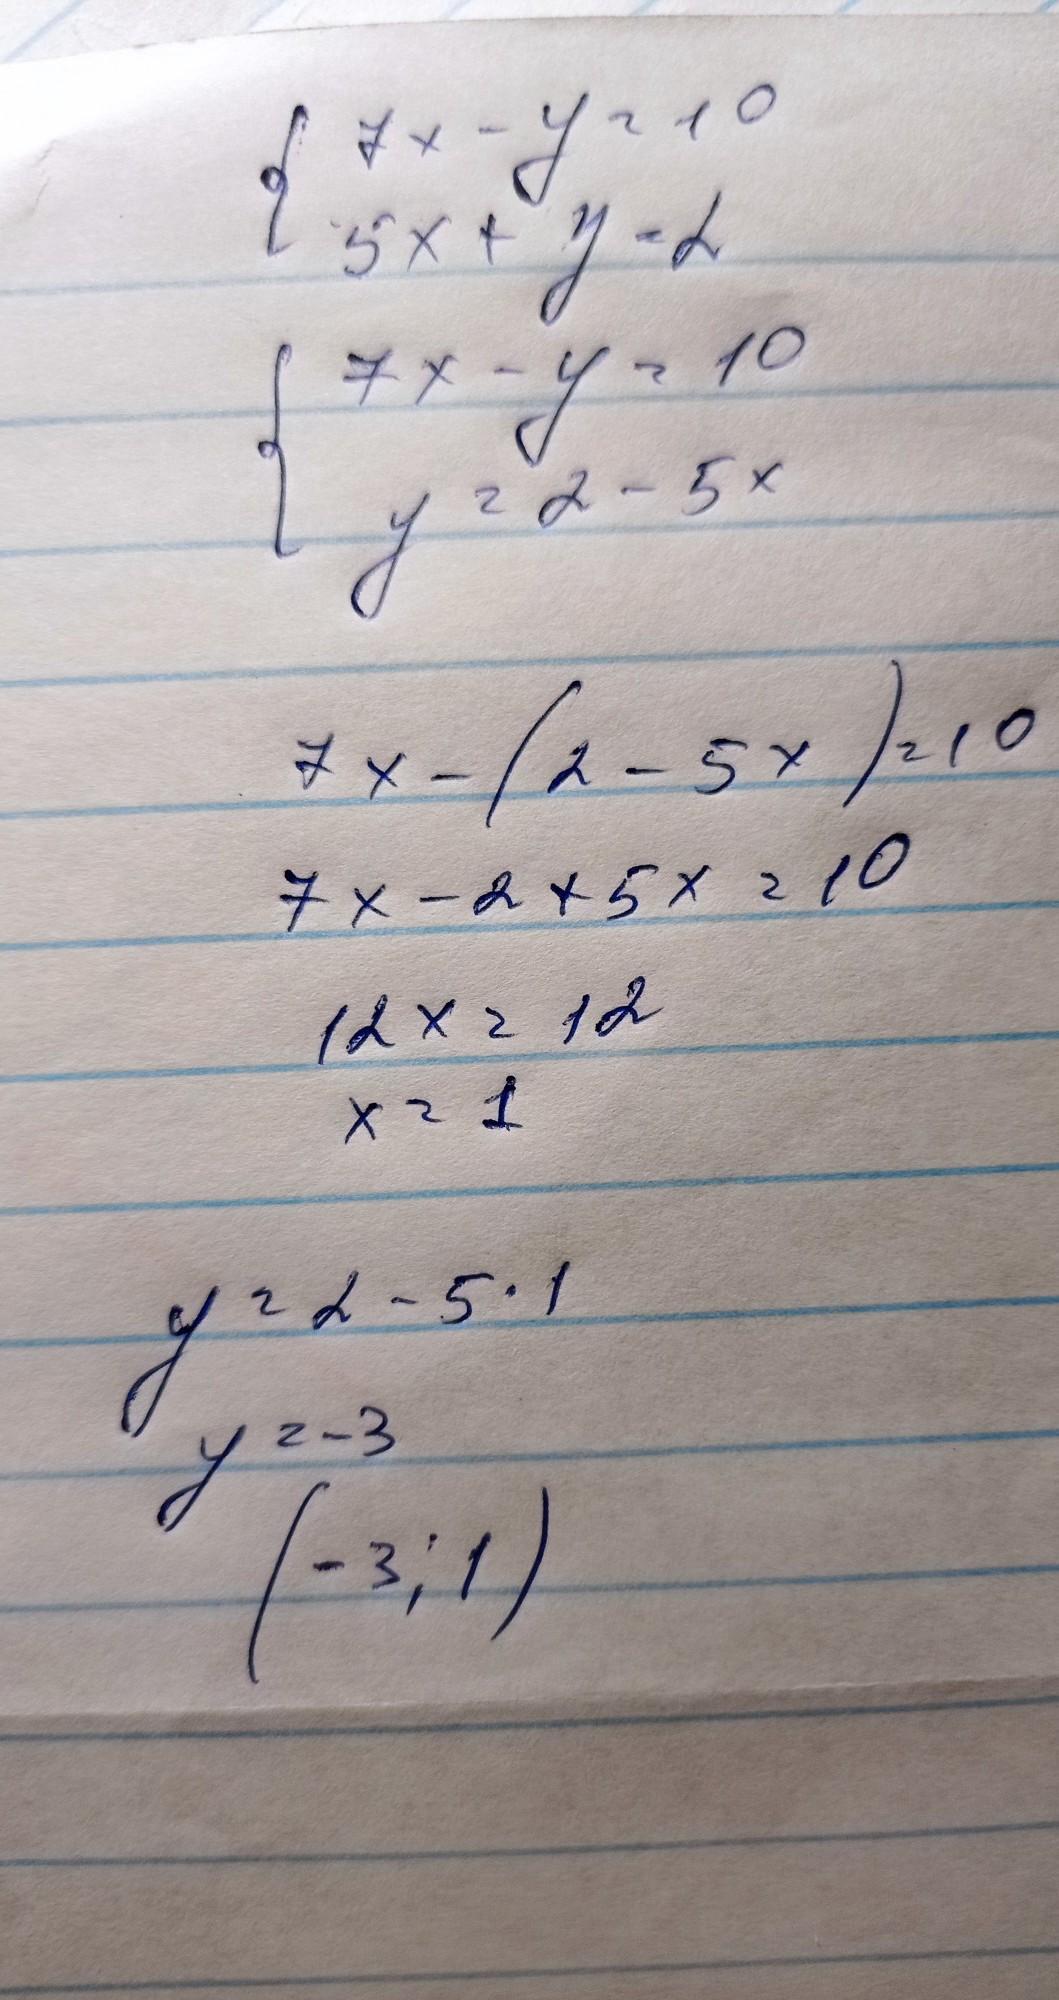 { 7x - y = 10
5x + y = 2
{ 7x - y = 10
y = 2 - 5x
7x - (2 - 5x) = 10
7x - 2 + 5x = 10
12x = 12
x = 1
y = 2 - 5 · 1
y = -3
(-3; 1)